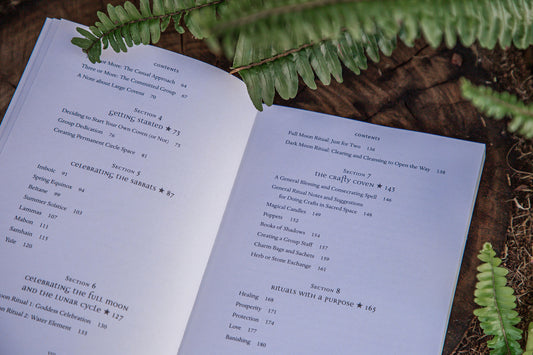 CONTENTS
or More: The Casual Approach 64
Three or More: The Committed Group
A Note about Large Covens 70
SECTION 4
getting started ★ 73
Deciding to Start Your Own Coven (or Not) 75
Group Dedication 76
Creating Permanent Circle Space 81
SECTION 5
celebrating the sabbats ★ 87
Imbolc 91
Spring Equinox 94
Beltane 99
Summer Solstice 103
Lammas 107
Mabon 111
Samhain 115
Yule 120
SECTION 6
celebrating the full moon
and the lunar cycle ★ 127
oon Ritual 1: Goddess Celebration 130
Ritual 2: Water Element 133
CONTENTS
Full Moon Ritual: Just for Two 136
Dark Moon Ritual: Clearing and Cleansing to Open the Way 138
SECTION 7
the crafty coven ★ 145
A General Blessing and Consecrating Spell 146
General Ritual Notes and Suggestions
for Doing Crafts in Sacred Space 148
Magical Candles 149
Poppets 152
Books of Shadows 154
Creating a Group Staff 157
Charm Bags and Sachets 159
Herb or Stone Exchange 161
SECTION 8
rituals with a purpose ★ 165
Healing 168
Prosperity 171
Protection 174
Love 177
Banishing 180